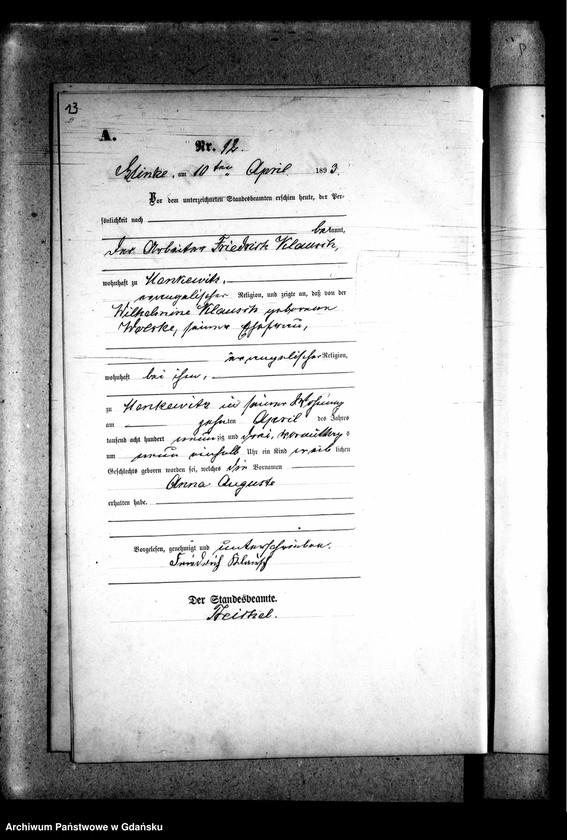 13
A.
Nr. 12.
Glinke, am 10ten April 1893.
Vor dem unterzeichneten Standesbeamten erschien heute, der Per-
sönlichkeit nach
bekannt,
der Arbeiter Friedrich Klausch,
wohnhaft zu Mankewitz,
evangelischer Religion, und zeigte an, daß von der
Wilhelmine Klausch geborenen
Wolske, seiner Ehefrau,
evangelischer Religion,
wohnhaft bei ihm,
zu Mankewitz in seiner Wohnung
am zehnten April des Jahres
tausend acht hundert neunzig und drei, Vormittags
um neun einhalb Uhr ein Kind weiblichen
Geschlechts geboren worden sei, welches die Vornamen
Anna Auguste
erhalten habe.
Vorgelesen, genehmigt und unterschrieben.
Friedrich Klausch
Der Standesbeamte.
Archiwum Państwowe w Gdańsku